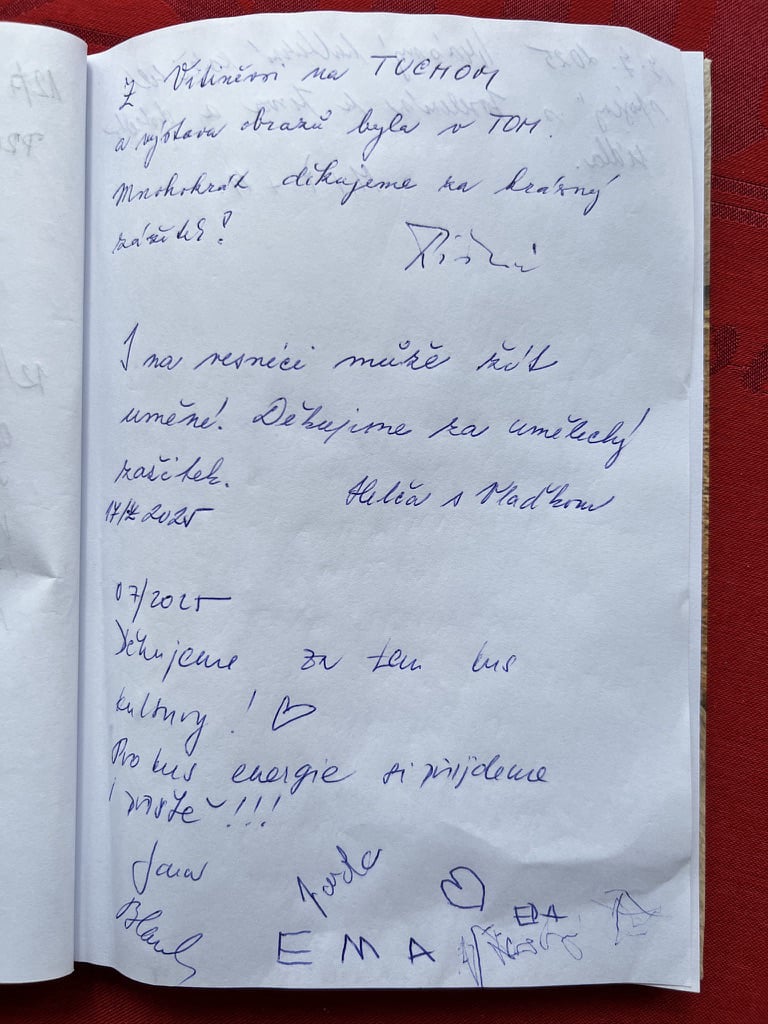 Z Vitiněvsi na TUCHOM
a výstava obrazů byla v TOM.
Mnohokrát děkujeme za krásný
zážitek!
I na vesnici může žít
umění! Děkujeme za umělecký
zážitek.
Helča s Vlaďkom
2025
07/2025
Děkujeme za ten kus
kultury!
Pro kus energie si přijdeme
i příště!!!
Jana
EMA